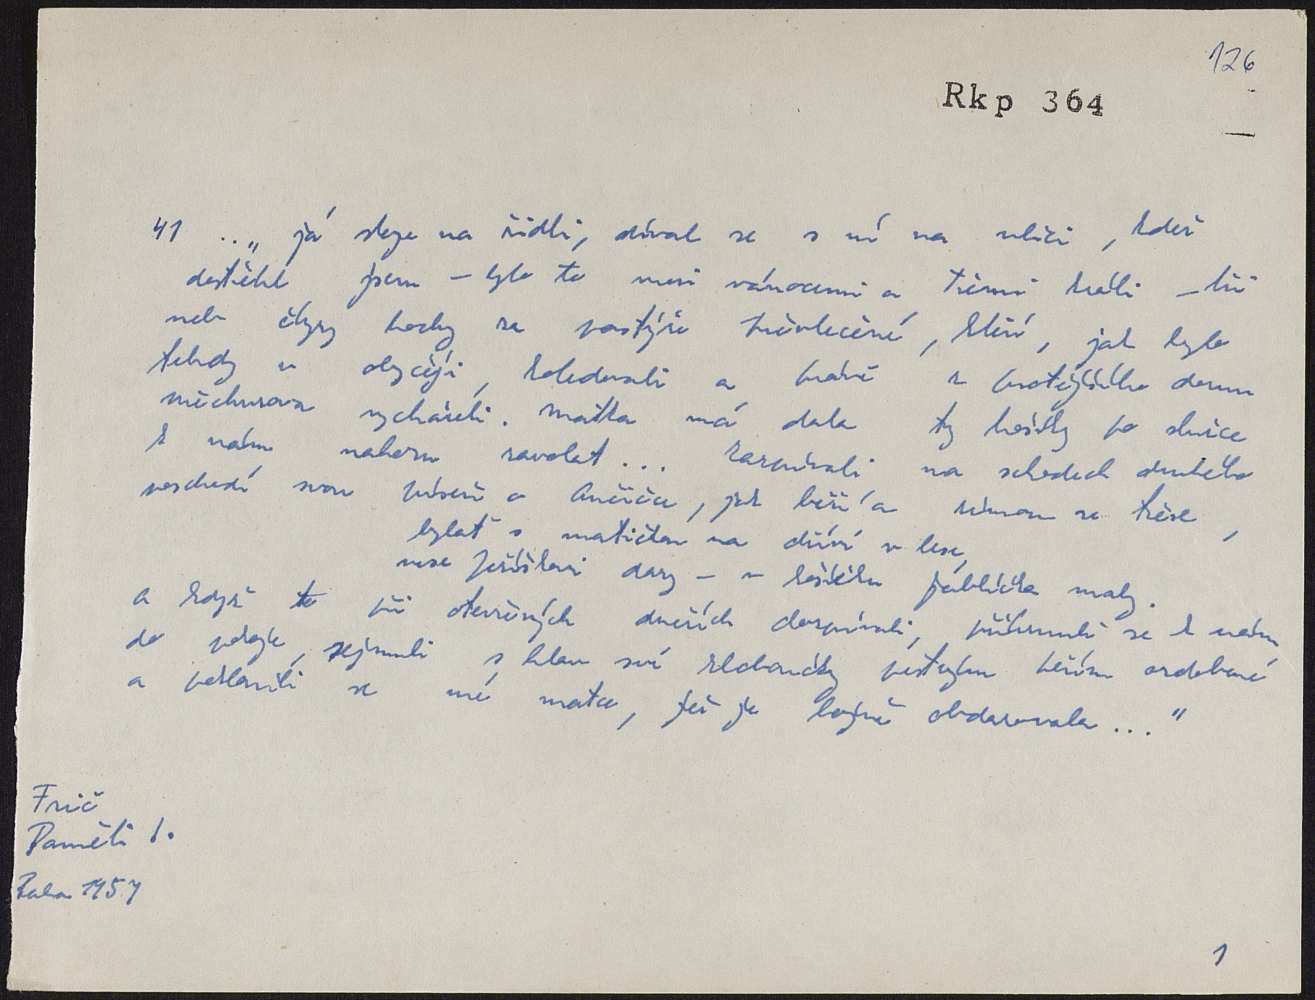 126
Rkp 364
41 ..„ já stoje na židli, díval se s ní na ulici, kdež
dostihl jsem – bylo to mezi vánocemi a Třemi králi – tři
neb čtyry hochy za pastýře převlečené, kteří, jak bylo
tehdy v obyčeji, koledovali a právě z protějšího domu
měchurova vycházeli. Matka má dala ty hošíky po služce
k nám nahoru zavolat... Zazpívali na schodech druhého
poschodí svou píseň o Ančičce, jak běží a zimou se třese,
bylať s matičkou na dříví v lese,
nese Ježíškovi dary – v košíčku jablíčka malý.
a když to při otevřených dveřích dozpívali, přihrnuli se k nám
do pokoje, sejmuli s hlav své kloboučky pestrým peřím ozdobené
a poklonili se mé matce, jež je hojně obdarovala..."
Frič
Paměti I.
Praha 1957
1